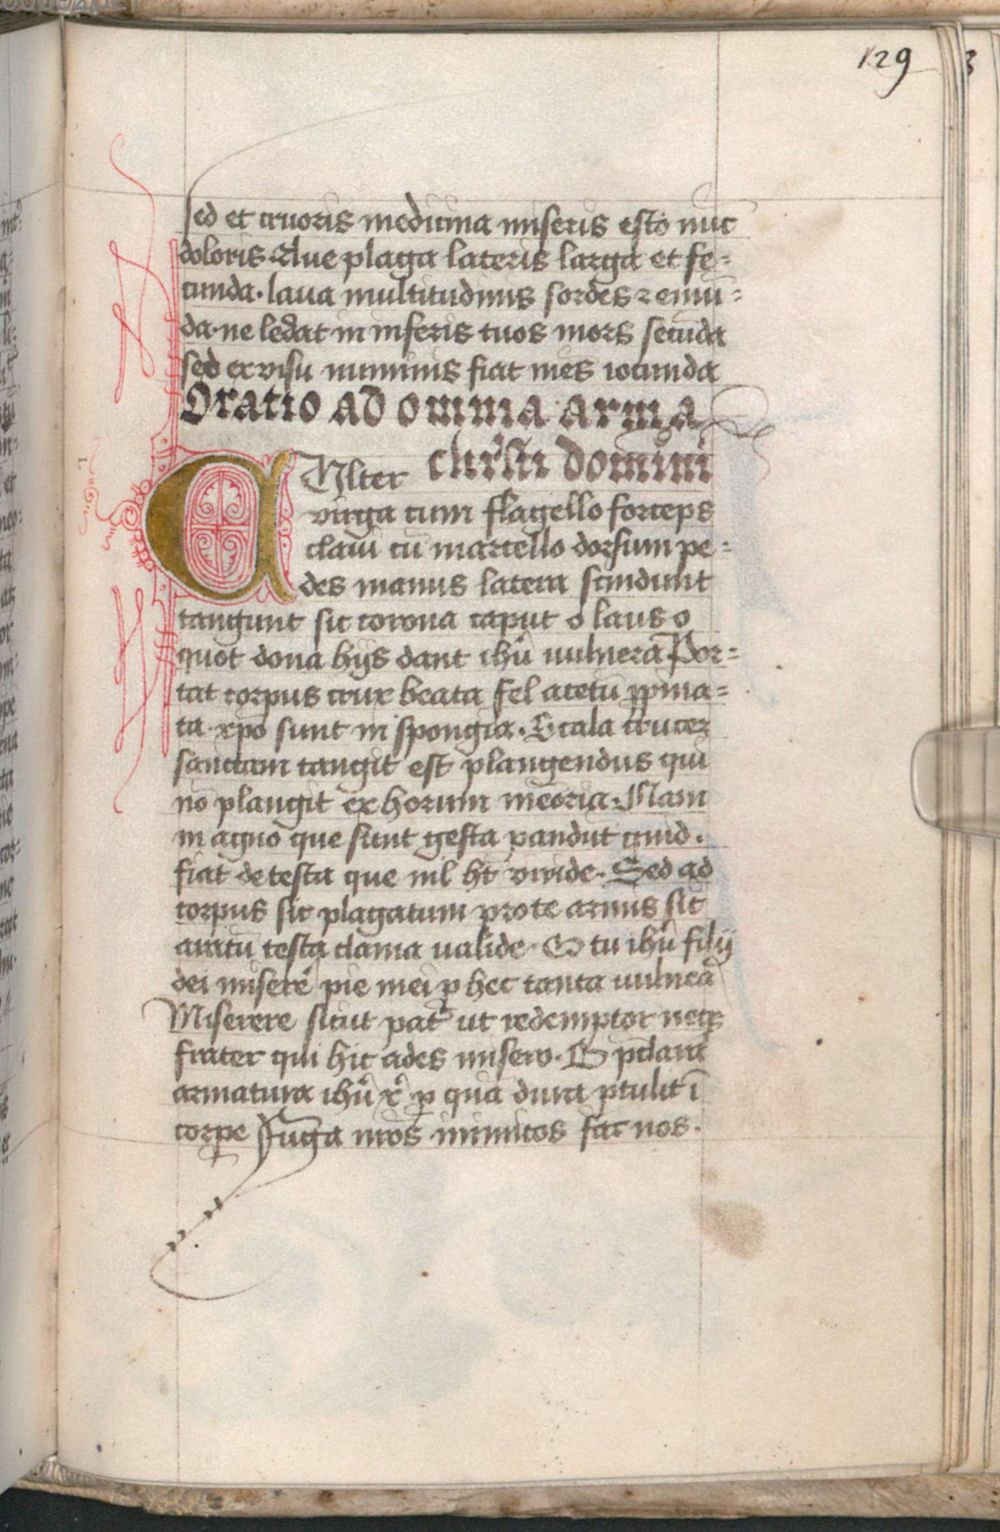 129
sed et cruoris medicina miseris esto nūc
doloris. Aue plaga lateris larga et fe-
cunda. laua multitudinis sordes ⁊ emū-
da. ne ledat in inferis tuos mors secūda
sed ex visu numinis fiat mēs iocunda
Oratio ad omnia arma
chrīsti domini
CVlter
virga cum flagello forceps
claui cū martello dorsum pe-
des manus latera scindunt
tangunt sic corona caput o laus o
quot dona hijs dant ihū uulnera Por-
tat corpus crux beata fel acetū ꝓpina-
ta xp̄o sunt in spongia. Scala crucem
sanctam tangit est plangendus qui
nō plangit ex horum meōria. Nam
in agno que sunt gesta pandūt quid.
fiat de testa que nil ht̄ viride. Sed ad
corpus sic plagatum pro te armis sic
auratū testa clama ualide. O tu ihū filij
dei miserē pie mei ꝑ hec tanta uulnera
Miserere sicut pat̄ ut redemptor necꝫ
frater qui hic ades misero. O pclara
armatura ihū xp̄i ꝑ qua dura ꝑtulit ī
corpe Iuga nr̄os inimicos fac nos.